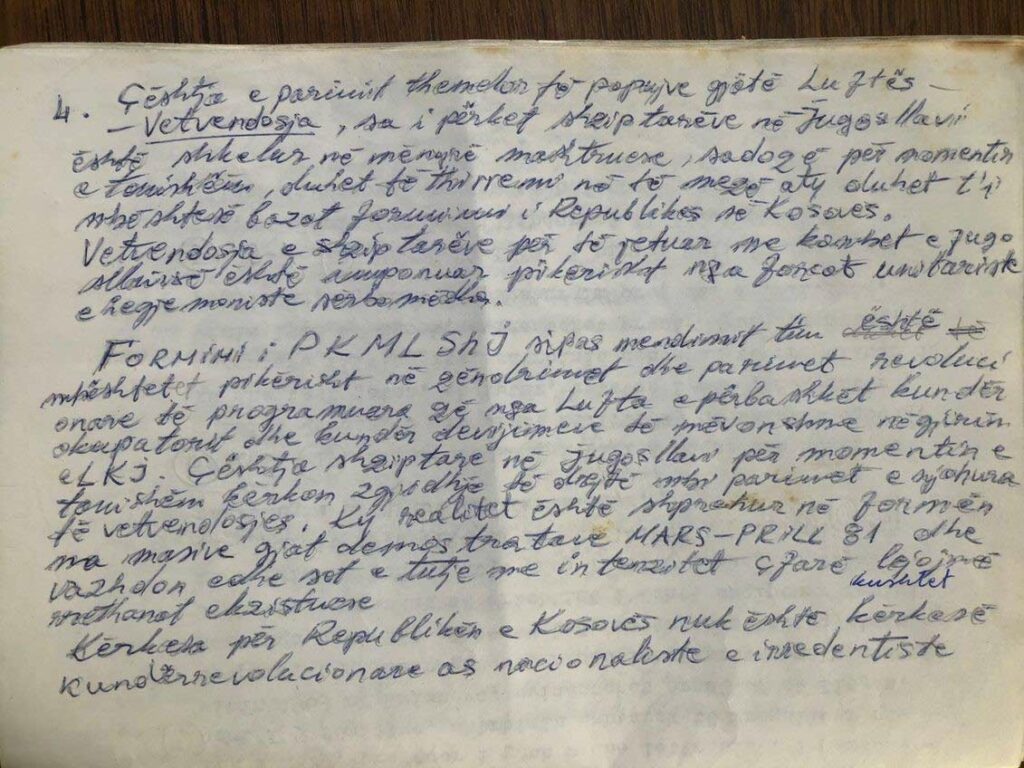 4. Çështja e parimit themelor të popujve gjatë Luftës –
– Vetvendosja, sa i përket shqiptarëve në Jugosllavi
është shkelur në mënyrë mashtruese, sadoqë për momentin
e tanishëm, duhet të thirremi në të meqë aty duhet t'i
mbështesë bazat formimi i Republikës së Kosovës.
Vetvendosja e shqiptarëve për të jetuar me kombet e Jugo
sllavisë është imponuar pikërisht nga forcat unitariste
e hegjemoniste serbomëdha.
FORMIMI i PKMLShJ sipas mendimit tim është
mbështetet pikërisht në qëndrimet dhe parimet revoluci
onare të programuara që nga Lufta e përbashkët kundër
okupatorit dhe kundër devijimeve të mëvonshme në gjirin
e LKJ. Çështja shqiptare në Jugosllavi për momentin e
tanishëm kërkon zgjidhje të drejtë mbi parimet e njohura
të vetvendosjes. Ky realitet është shprehur në formën
ma masive gjat demostratave MARS-PRILL 81 dhe
vazhdon edhe sot e tutje me intenzitet çfarë lejojmë
kushtet
rrethanat ekzistuese
Kërkesa për Republikën e Kosovës nuk është kërkesë
kundërrevolucionare as nacionaliste e irredentiste